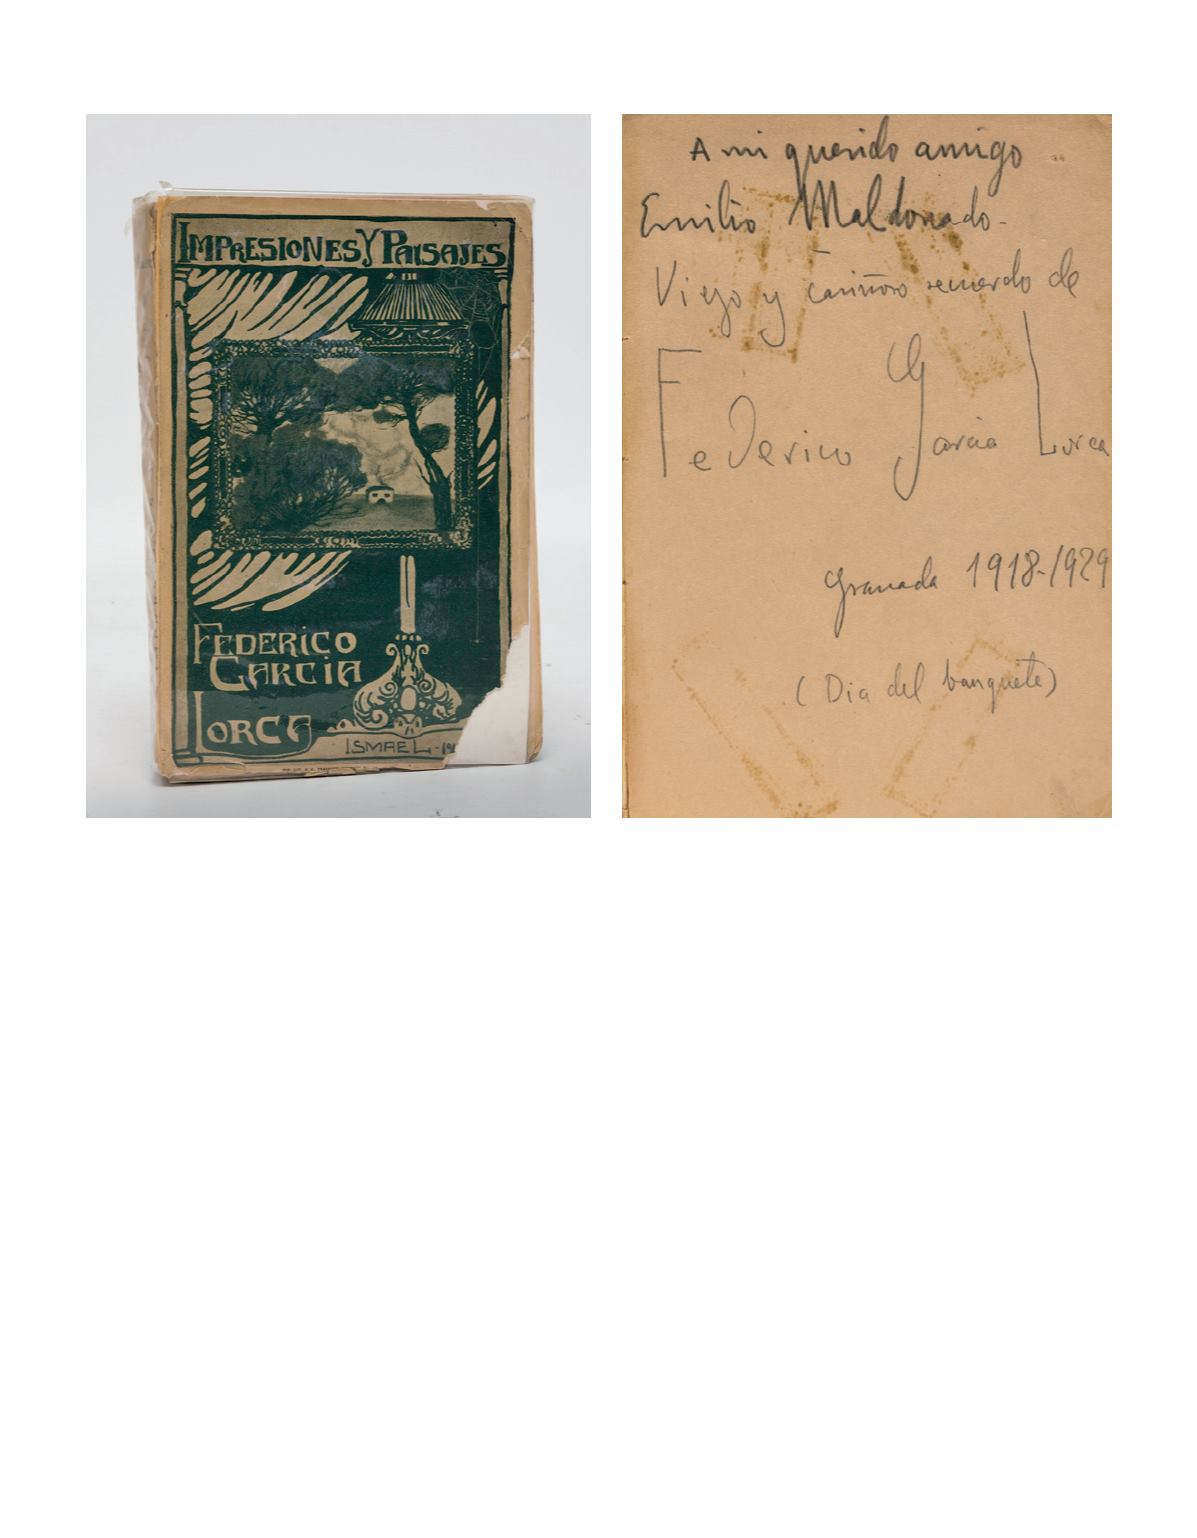 IMPRESIONES Y PAISAJES
FEDERICO
GARCIA
LORCA
ISMAEL-19
A mi querido amigo
Emilio Maldonado-
Viejo y cariñoso recuerdo de
Federico Garcia Lorca
Granada 1918-1929
(Dia del banquete)